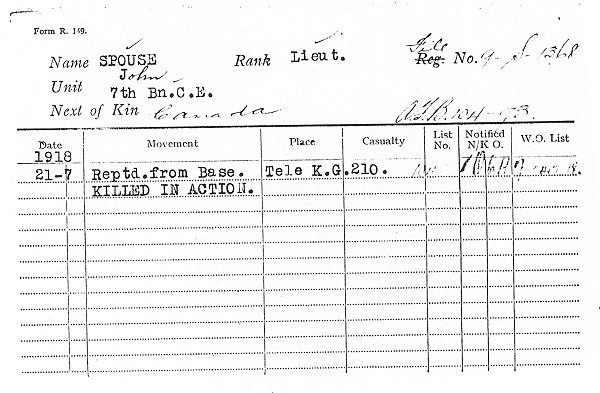 Form R. 149.
Name SPOUSE Rank Lieut. File Reg. No. 9-S-1368
John
Unit 7th Bn.C.E.
Next of Kin Canada
Date Movement Place Casualty List No. Notified N/K O. W.O. List
1918
21-7 Reptd.from Base. Tele K.G.210.
KILLED IN ACTION.